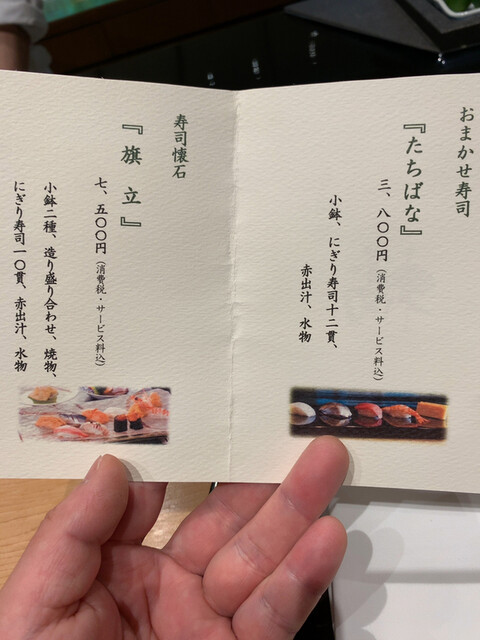 おまかせ寿司
『たちばな』
三、八〇〇円（消費税・サービス料込）
小鉢、にぎり寿司十二貫、
赤出汁、水物
寿司懐石
『旗立』
七、五〇〇円（消費税・サービス料込）
小鉢二種、造り盛り合わせ、焼物、
にぎり寿司一〇貫、赤出汁、水物